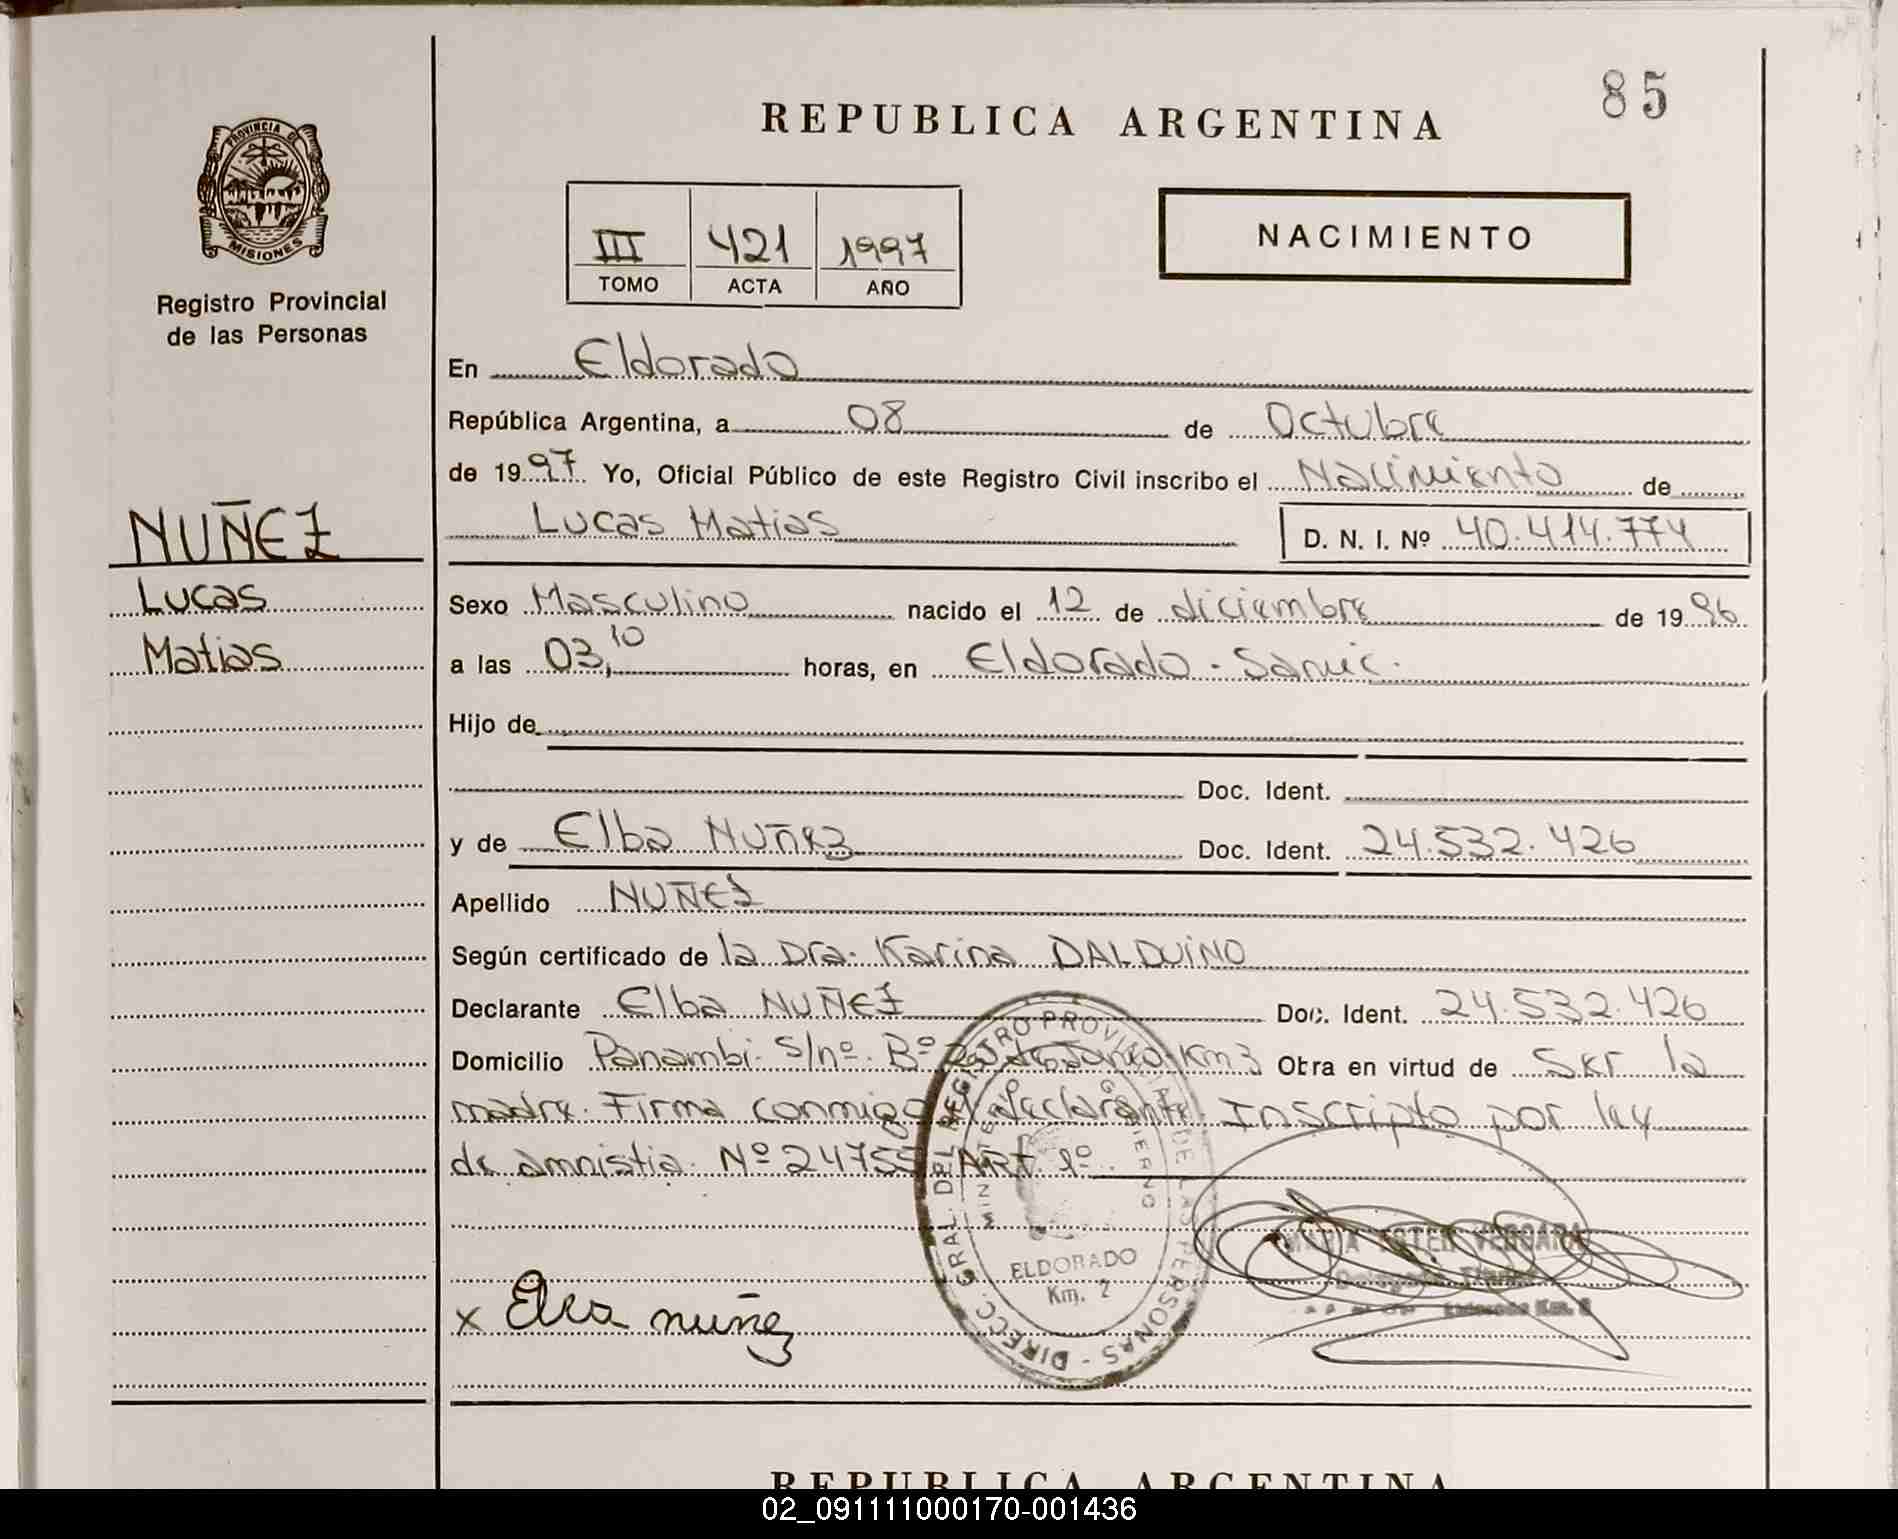 85
REPUBLICA ARGENTINA
PROVINCIA D
MISIONES
Registro Provincial
de las Personas
III 421 1997
TOMO ACTA AÑO
NACIMIENTO
En Eldorado
República Argentina, a 08 de Octubre
de 1997 Yo, Oficial Público de este Registro Civil inscribo el Nacimiento de
Lucas Matias D. N. I. Nº 40.414.774
NUÑEZ
Lucas
Matias
Sexo Masculino nacido el 12 de diciembre de 1996
a las 03,10 horas, en Eldorado - Samic.
Hijo de
Doc. Ident.
y de Elba Nuñez Doc. Ident. 24.532.426
Apellido NUÑEZ
Según certificado de la Dra. Karina DALDUINO
Declarante Elba NUÑEZ Doc. Ident. 24.532.426
Domicilio Panambi S/nº Bº Km 3 Obra en virtud de Ser la
madre. Firma conmigo declarante. Inscripto por ley
de amnistia Nº 24755 ART 1º.
DIRECC. GRAL. DEL REGISTRO PROVINCIAL DE LAS PERSONAS
MINISTERIO GOBIERNO
ELDORADO
Km. 2
VERGARA
Eldorado Km. 2
x Elba nuñez
REPUBLICA ARGENTINA
02_091111000170-001436